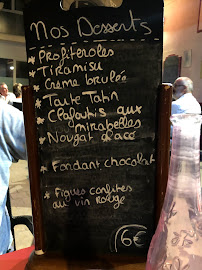 Nos Desserts
* Profiteroles
* Tiramisu
* Creme brulée
* Tarte Tatin
* Clafoutis aux
mirabelles
* Nougat glacé
* Fondant chocolat
* Figues confites
au vin rouge
6€